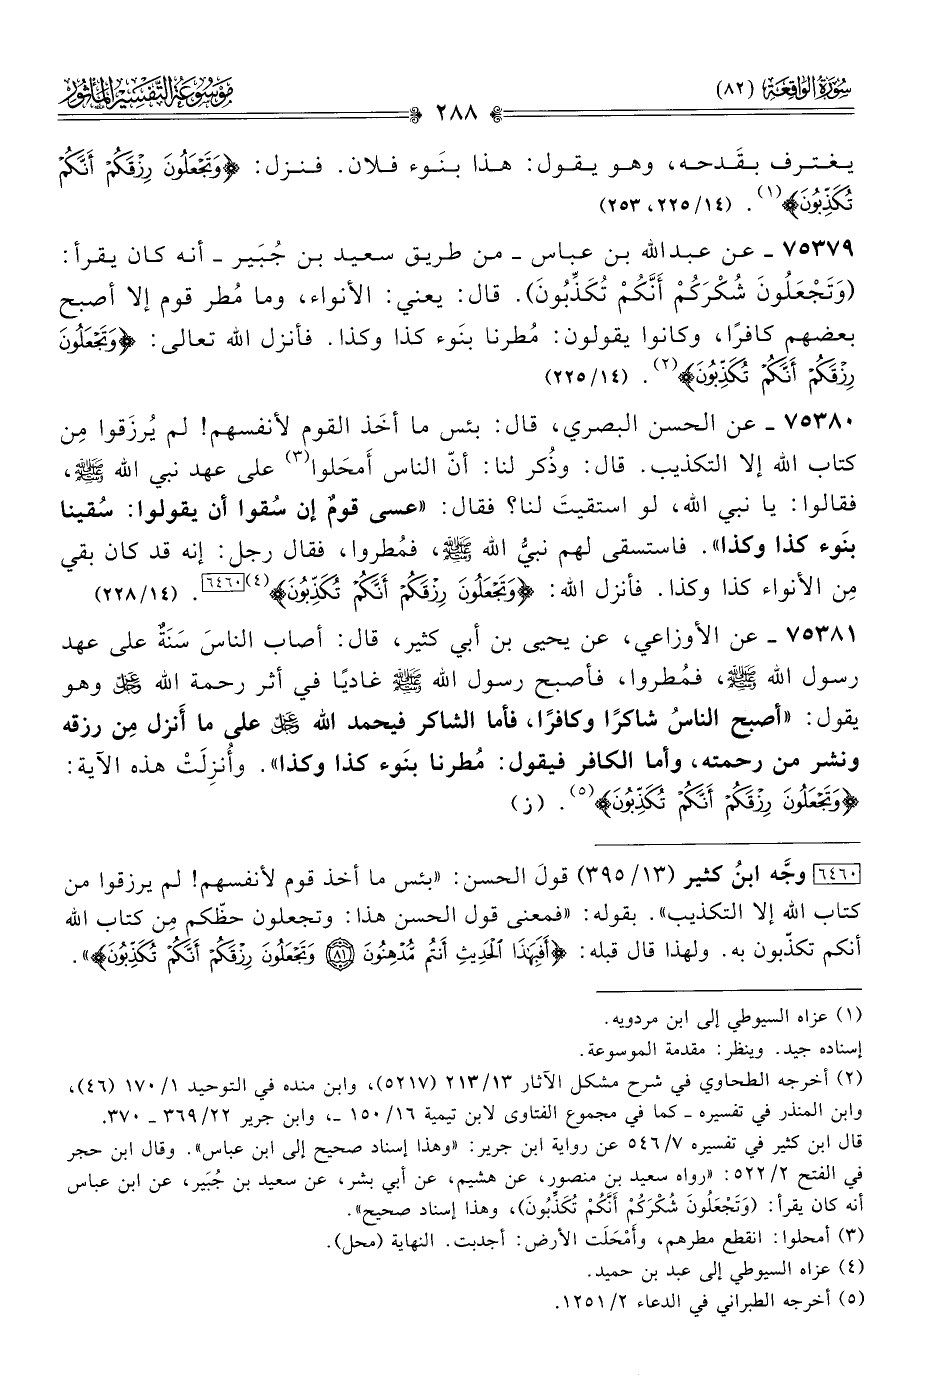 سُورَةُ الوَاقِعَة (٨٢)
٢٨٨
مَوْسُوعَةُ التَّفْسِيرِ المَأْثُورِ
يغترف بقَدحه، وهو يقول: هذا بنَوء فلان. فنزل: ﴿وَتَجْعَلُونَ رِزْقَكُمْ أَنَّكُمْ
تُكَذِّبُونَ﴾(١). (١٤/ ٢٢٥، ٢٥٣)
٧٥٣٧٩ ـ عن عبدالله بن عباس ـ من طريق سعيد بن جُبَير ـ أنه كان يقرأ:
(وَتَجْعَلُونَ شُكْرَكُمْ أَنَّكُمْ تُكَذِّبُونَ). قال: يعني: الأنواء، وما مُطر قوم إلا أصبح
بعضهم كافرًا، وكانوا يقولون: مُطرنا بنَوء كذا وكذا. فأنزل الله تعالى: ﴿وَتَجْعَلُونَ
رِزْقَكُمْ أَنَّكُمْ تُكَذِّبُونَ﴾(٢). (١٤/ ٢٢٥)
٧٥٣٨٠ ـ عن الحسن البصري، قال: بئس ما أخَذ القوم لأنفسهم! لم يُرزَقوا مِن
كتاب الله إلا التكذيب. قال: وذُكر لنا: أنّ الناس أَمحَلوا(٣) على عهد نبي الله ﷺ،
فقالوا: يا نبي الله، لو استقيتَ لنا؟ فقال: «عسى قومٌ إن سُقوا أن يقولوا: سُقينا
بنَوء كذا وكذا». فاستسقى لهم نبيُّ الله ﷺ، فمُطروا، فقال رجل: إنه قد كان بقي
مِن الأنواء كذا وكذا. فأنزل الله: ﴿وَتَجْعَلُونَ رِزْقَكُمْ أَنَّكُمْ تُكَذِّبُونَ﴾(٤)[٦٤٦٠]. (١٤/ ٢٢٨)
٧٥٣٨١ ـ عن الأوزاعي، عن يحيى بن أبي كثير، قال: أصاب الناسَ سَنَةٌ على عهد
رسول الله ﷺ، فمُطروا، فأصبح رسول الله ﷺ غاديًا في أثر رحمة الله ﷿ وهو
يقول: «أصبح الناسُ شاكرًا وكافرًا، فأما الشاكر فيحمد الله ﷿ على ما أَنزل مِن رزقه
ونشر من رحمته، وأما الكافر فيقول: مُطرنا بنَوء كذا وكذا». وأُنزِلَتْ هذه الآية:
﴿وَتَجْعَلُونَ رِزْقَكُمْ أَنَّكُمْ تُكَذِّبُونَ﴾(٥). (ز)
[٦٤٦٠] وجَّه ابنُ كثير (١٣/ ٣٩٥) قولَ الحسن: «بئس ما أخذ قوم لأنفسهم! لم يرزقوا من
كتاب الله إلا التكذيب». بقوله: «فمعنى قول الحسن هذا: وتجعلون حظّكم مِن كتاب الله
أنكم تكذّبون به. ولهذا قال قبله: ﴿أَفَبِهَذَا الْحَدِيثِ أَنتُم مُّدْهِنُونَ ۝٨١ وَتَجْعَلُونَ رِزْقَكُمْ أَنَّكُمْ تُكَذِّبُونَ﴾».
(١) عزاه السيوطي إلى ابن مردويه.
إسناده جيد. وينظر: مقدمة الموسوعة.
(٢) أخرجه الطحاوي في شرح مشكل الآثار ١٣/ ٢١٣ (٥٢١٧)، وابن منده في التوحيد ١/ ١٧٠ (٤٦)،
وابن المنذر في تفسيره ـ كما في مجموع الفتاوى لابن تيمية ١٦/ ١٥٠ ـ، وابن جرير ٢٢/ ٣٦٩ ـ ٣٧٠.
قال ابن كثير في تفسيره ٧/ ٥٤٦ عن رواية ابن جرير: «وهذا إسناد صحيح إلى ابن عباس». وقال ابن حجر
في الفتح ٢/ ٥٢٢: «رواه سعيد بن منصور، عن هشيم، عن أبي بشر، عن سعيد بن جُبَير، عن ابن عباس
أنه كان يقرأ: (وَتَجْعَلُونَ شُكْرَكُمْ أَنَّكُمْ تُكَذِّبُونَ)، وهذا إسناد صحيح».
(٣) أمحلوا: انقطع مطرهم، وأَمْحَلَت الأرض: أجدبت. النهاية (محل).
(٤) عزاه السيوطي إلى عبد بن حميد.
(٥) أخرجه الطبراني في الدعاء ٢/ ١٢٥١.